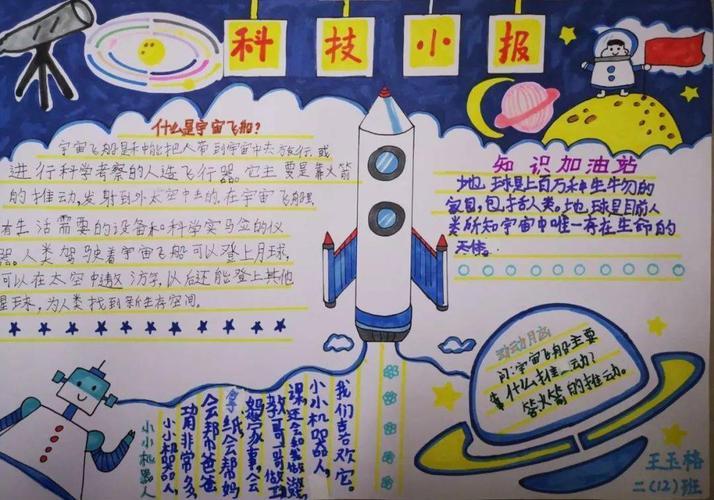 科技小报
什么是宇宙飞船?
宇宙飞船是种能把人带到宇宙中去放行,或
进行科学考察的人造飞行器。它主要是靠火箭
的推动,发射到外太空中去的。在宇宙飞船里
有生活需要的设备和科学实验的仪
器。人类驾驶着宇宙飞船可以登上月球,
可以在太空中遨游,以后还能登上其他
星球,为人类找到新生存空间。
知识加油站
地球是上百万种生物的
家园,包括人类。地球是目前人
类所知宇宙中唯一存在生命的
天体。
问:宇宙飞船主要
靠什么推动?
答:火箭的推动。
我们喜欢它。
小小机器人,
课还会和我做游
教哥哥做工
妈家事,会
拿纸,会帮妈
会帮爸爸
用非常多,
小小机器人
小小机器人
王玉格
二(12)班